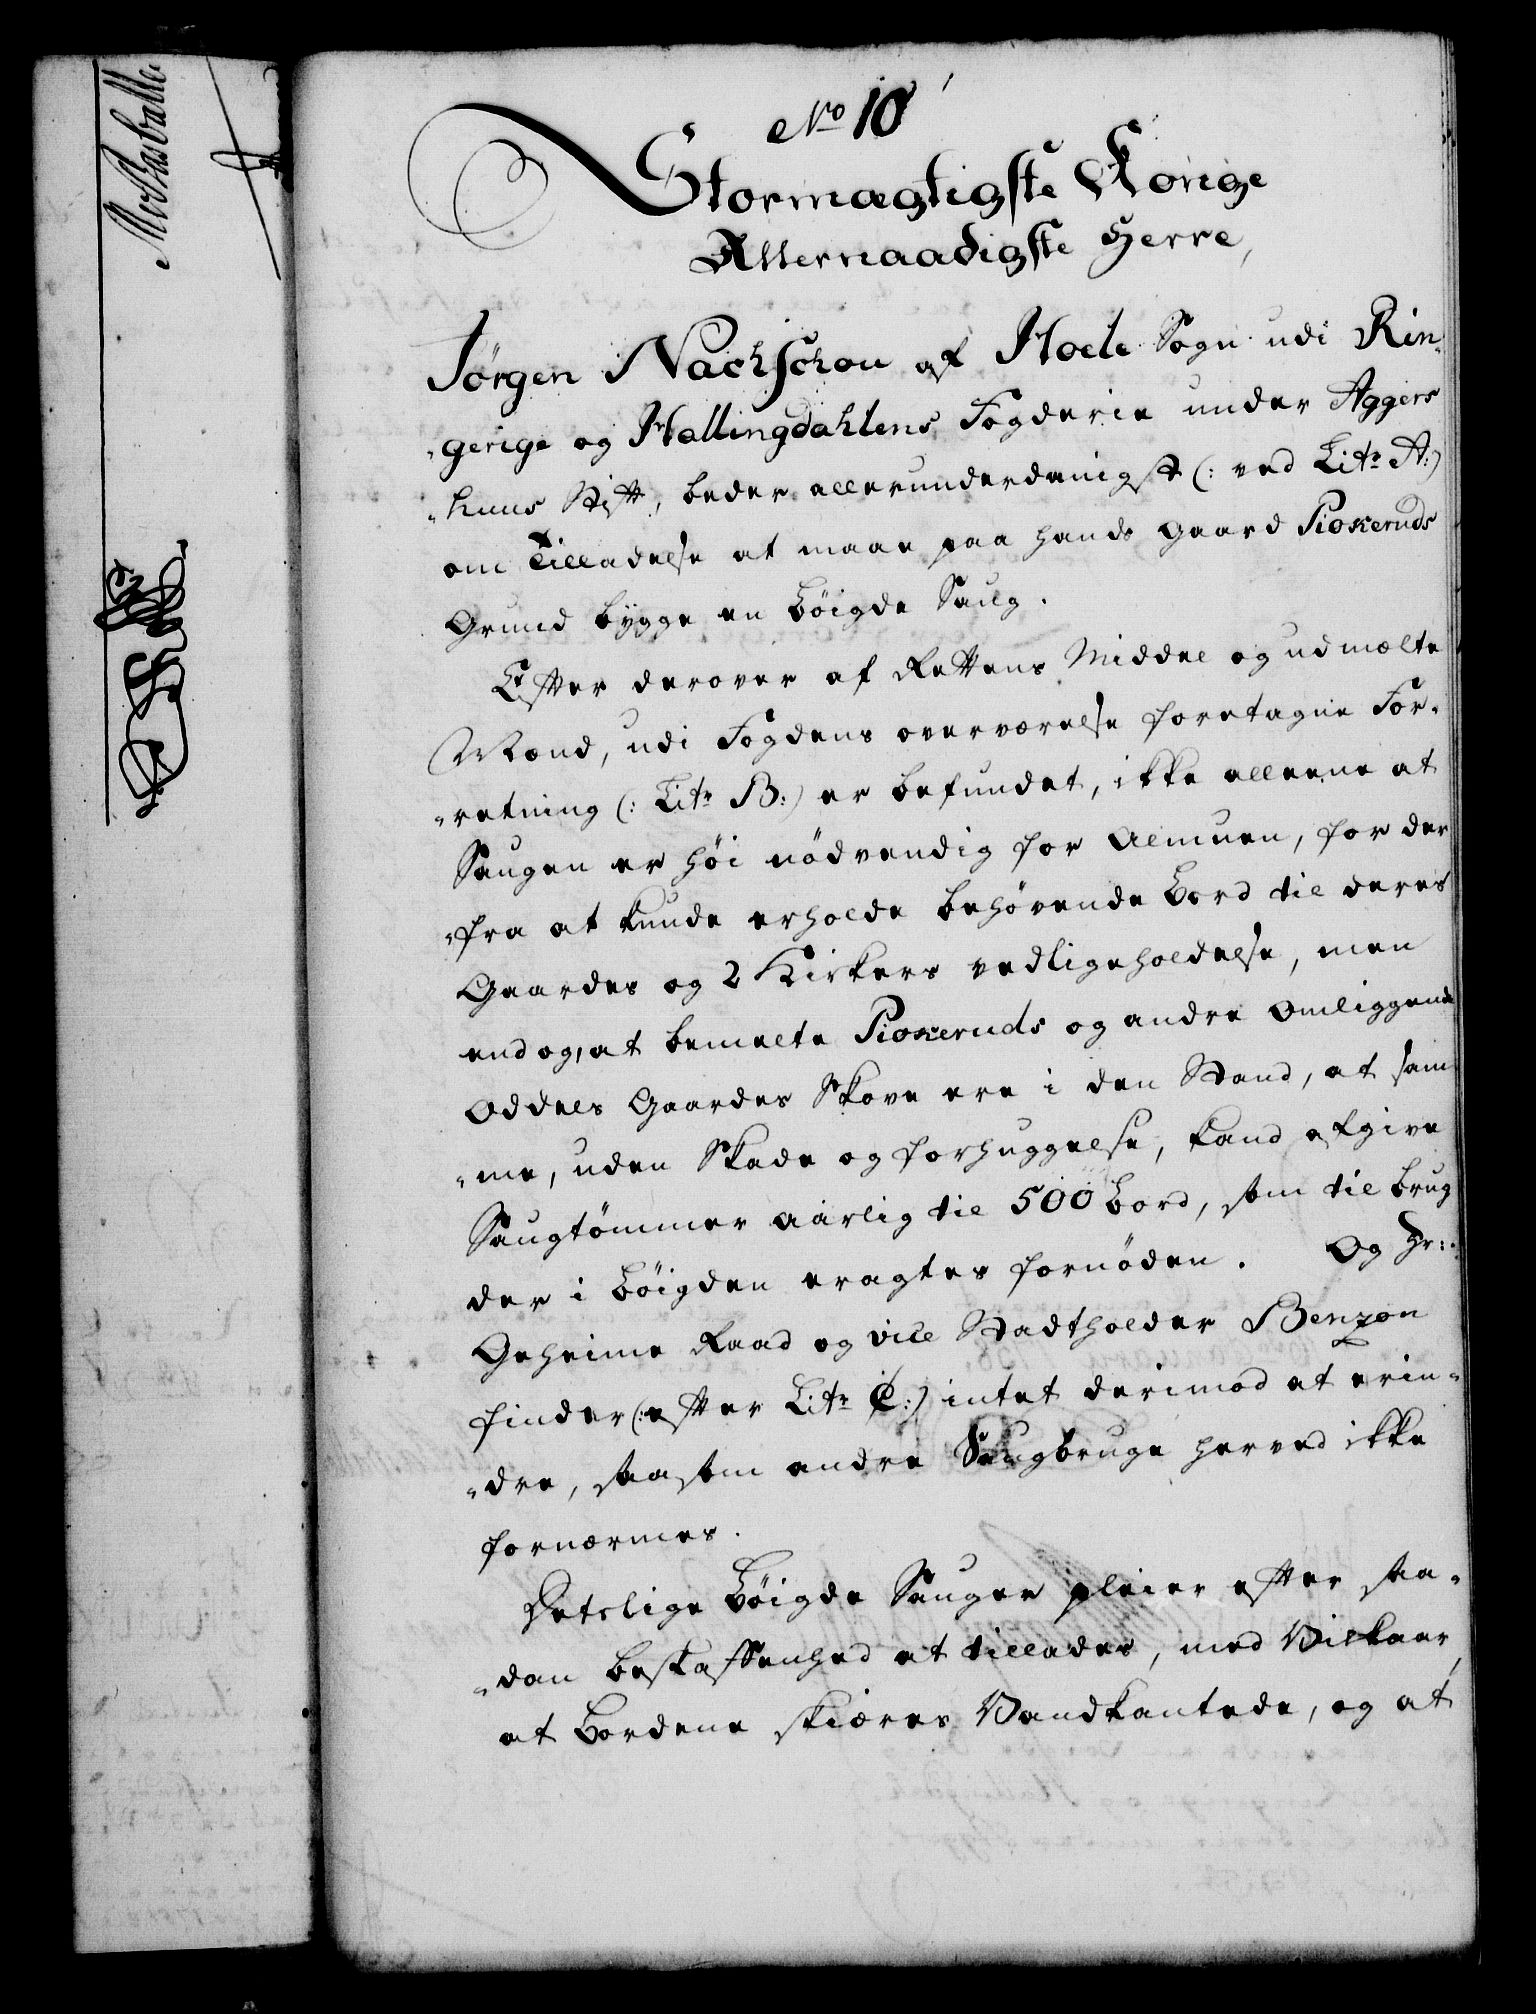 No 10
Stormægtigste Konge
Allernaadigste Herre,
Jørgen Nachschou af Hoele Sogn udi Rin-
-gerige og Hallingdahlens Fogderie under Aggers
-huus Stift, beder allerunderdanigst (: ved Litr A:)
om Tilladelse at maae paa hands Gaard Piokeruds
Grund bygge en Böigde Saug.
Efter derover af Rettens Middel og udmelte
Mænd, udi Fogdens overværelse foretagne For-
-retning (: Litr B:) er befundet, ikke alleene at
Saugen er höi nödvendig for Almuen, for der
-fra at kunde erholde behøvende Bord til deres
Gaardes og 2 Kirkers vedligeholdelse, men
endog, at bemelte Piokeruds og andre omliggende
Oddels Gaardes Skove ere i den Stand, at sam
-me, uden Skade og forhuggelse, kand afgive
Saugtömmer aarlig til 500 Bord, som til brug
der i Böigden eragtes fornöden. Og Hr:
Geheime Raad og vice Stadtholder Benzon
finder (: efter Litr C:) intet derimod at erin-
-dre, saasom andre Saugbruge herved ikke
fornærmes.
Detslige Böigde Sauger pleier efter saa-
-dan beskaffenhed at tillades, med Vilkaar,
at Bordene skiæres Vandkantede, og at